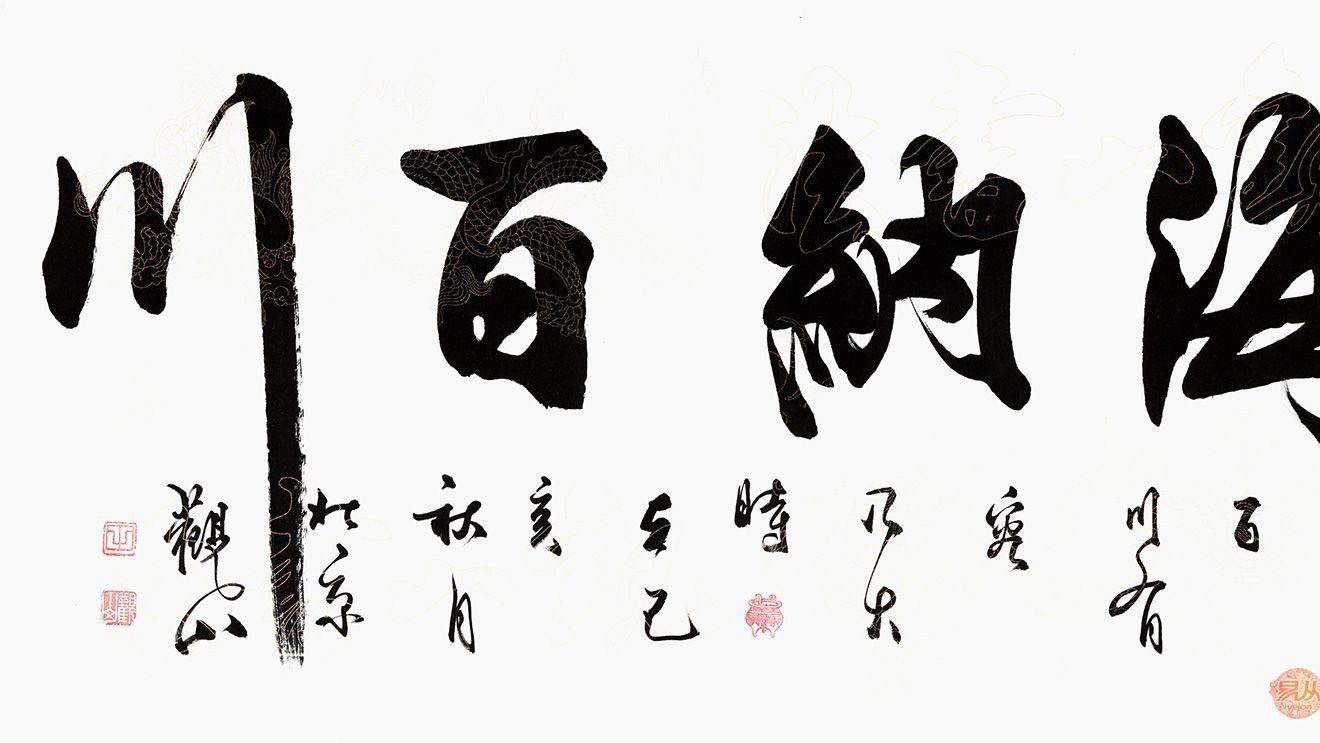 海納百川
百
川有
容
乃大
時
在己
亥
秋月
北京
觀山
易从
yejon